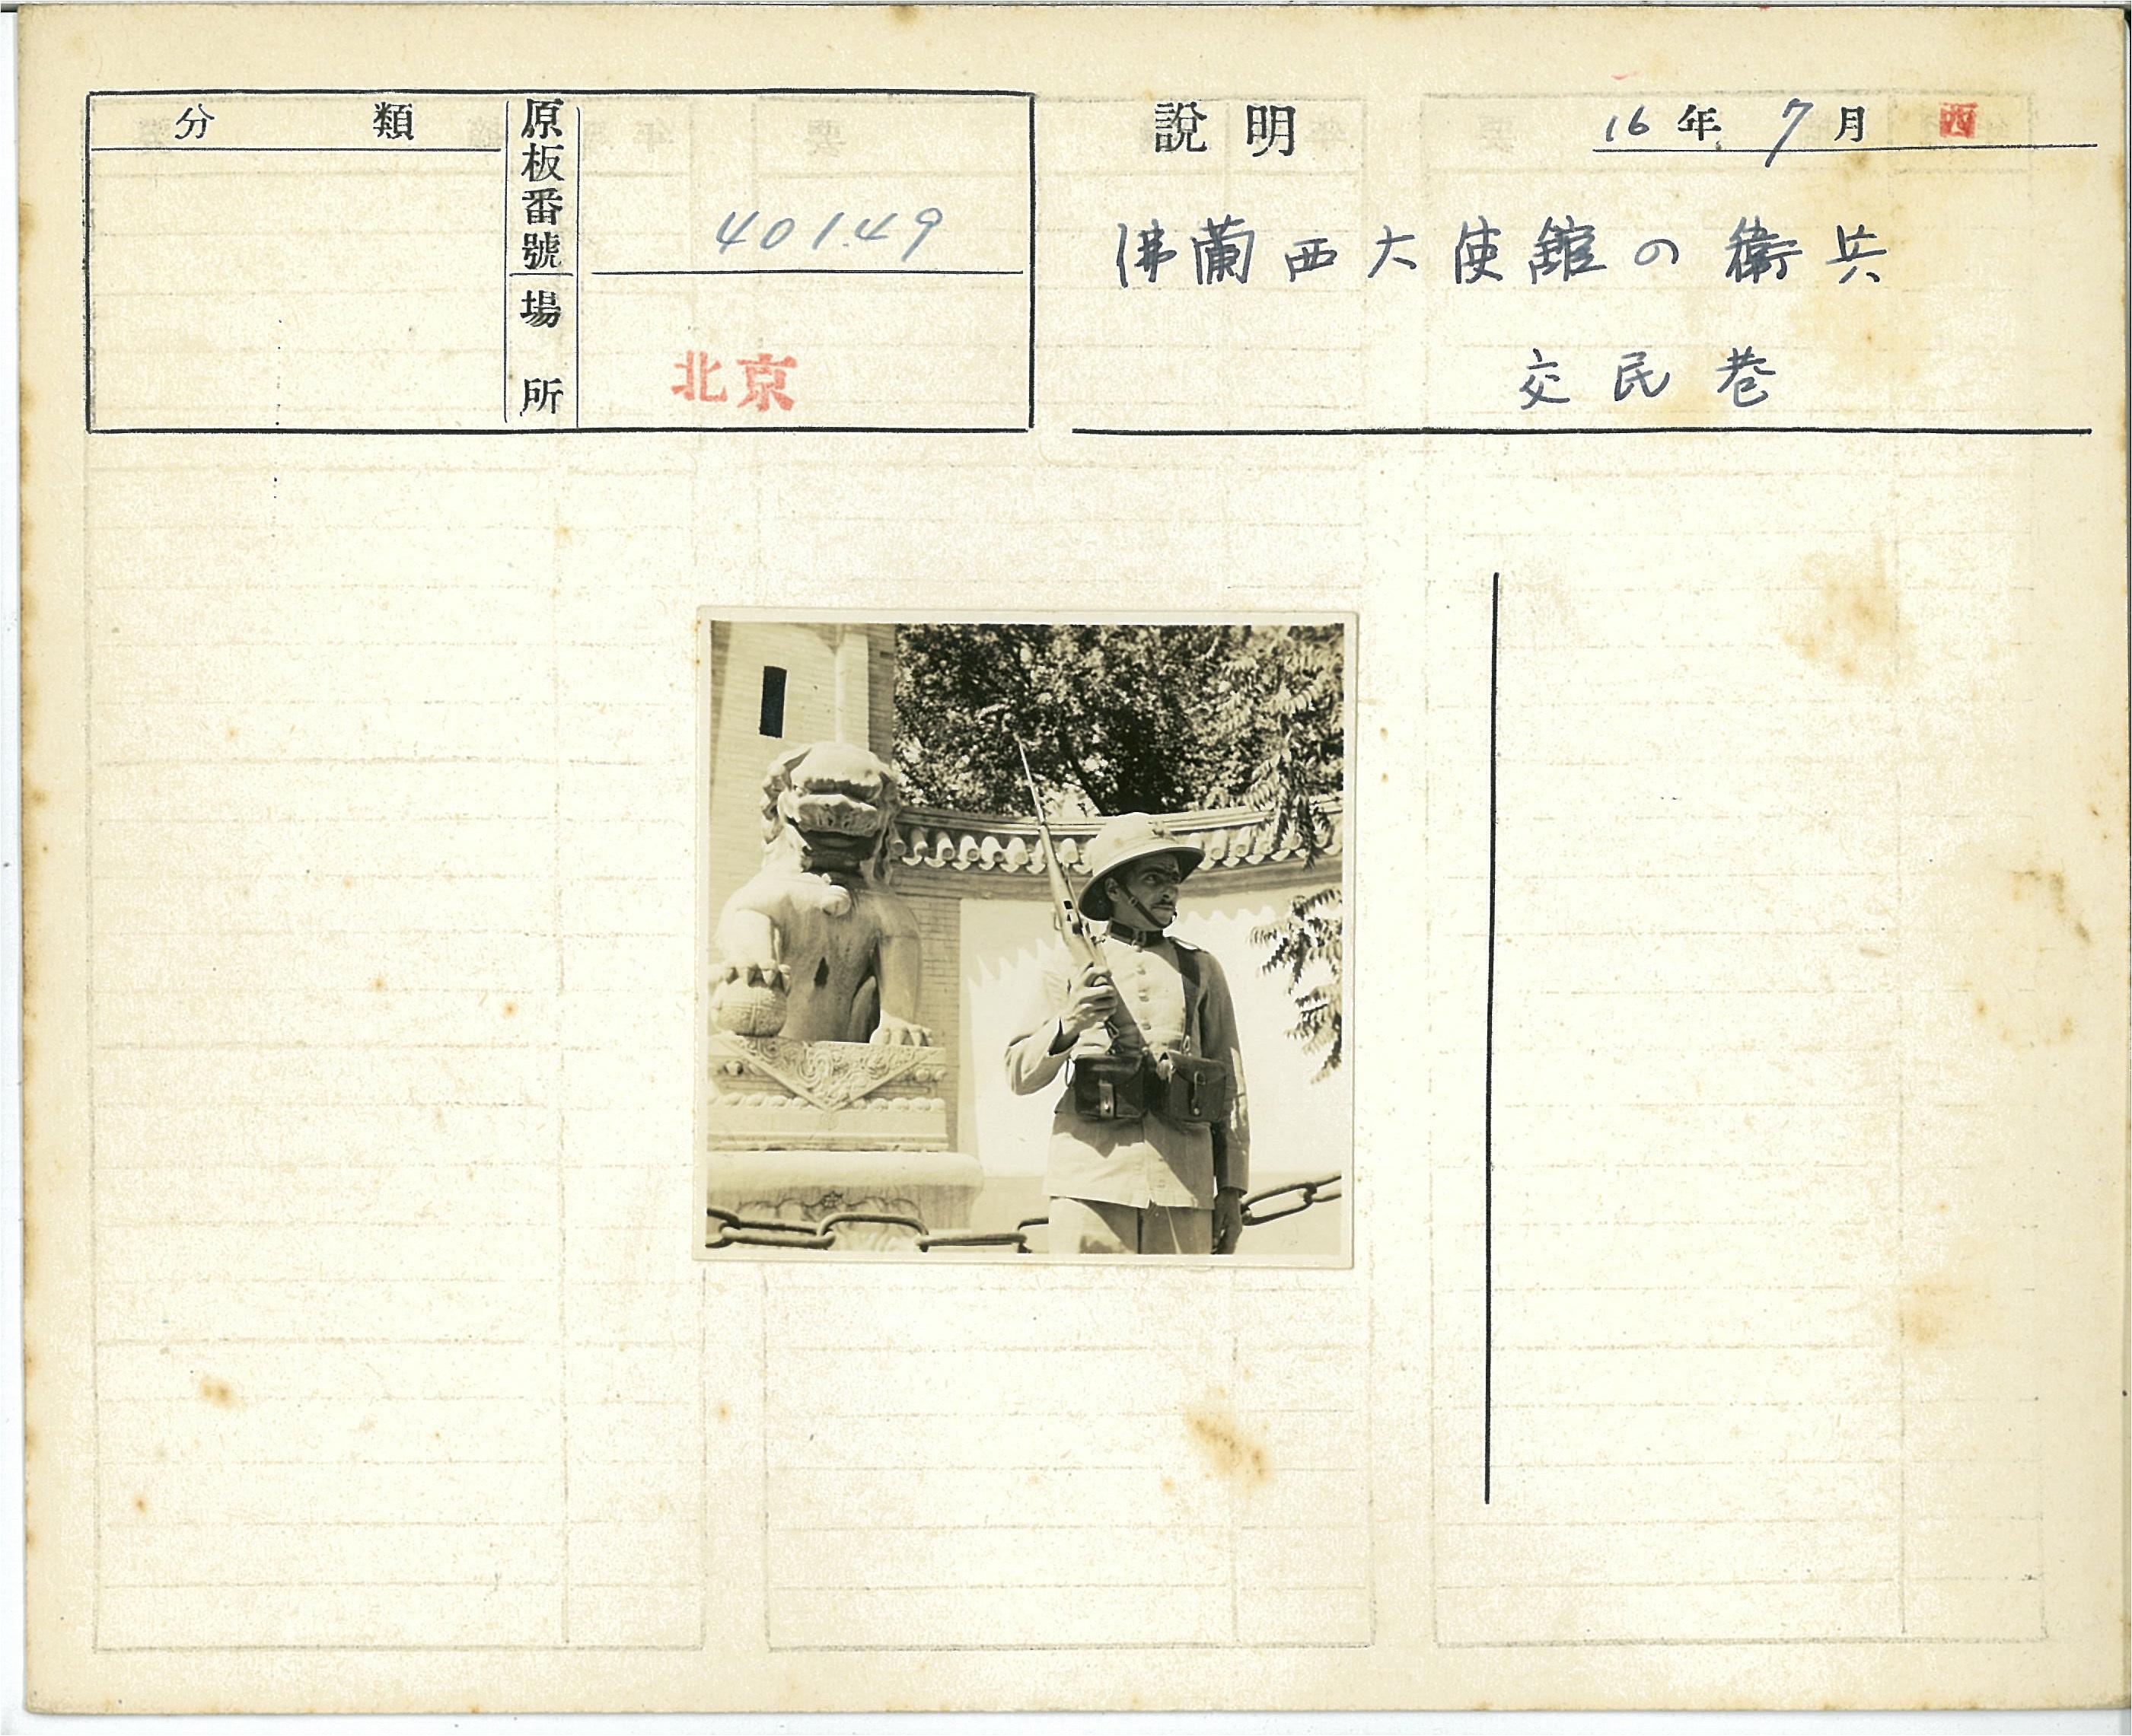 分類
原板番號
40149
場所
北京
說明
16年7月
西
佛蘭西大使館の衛兵
交民巷